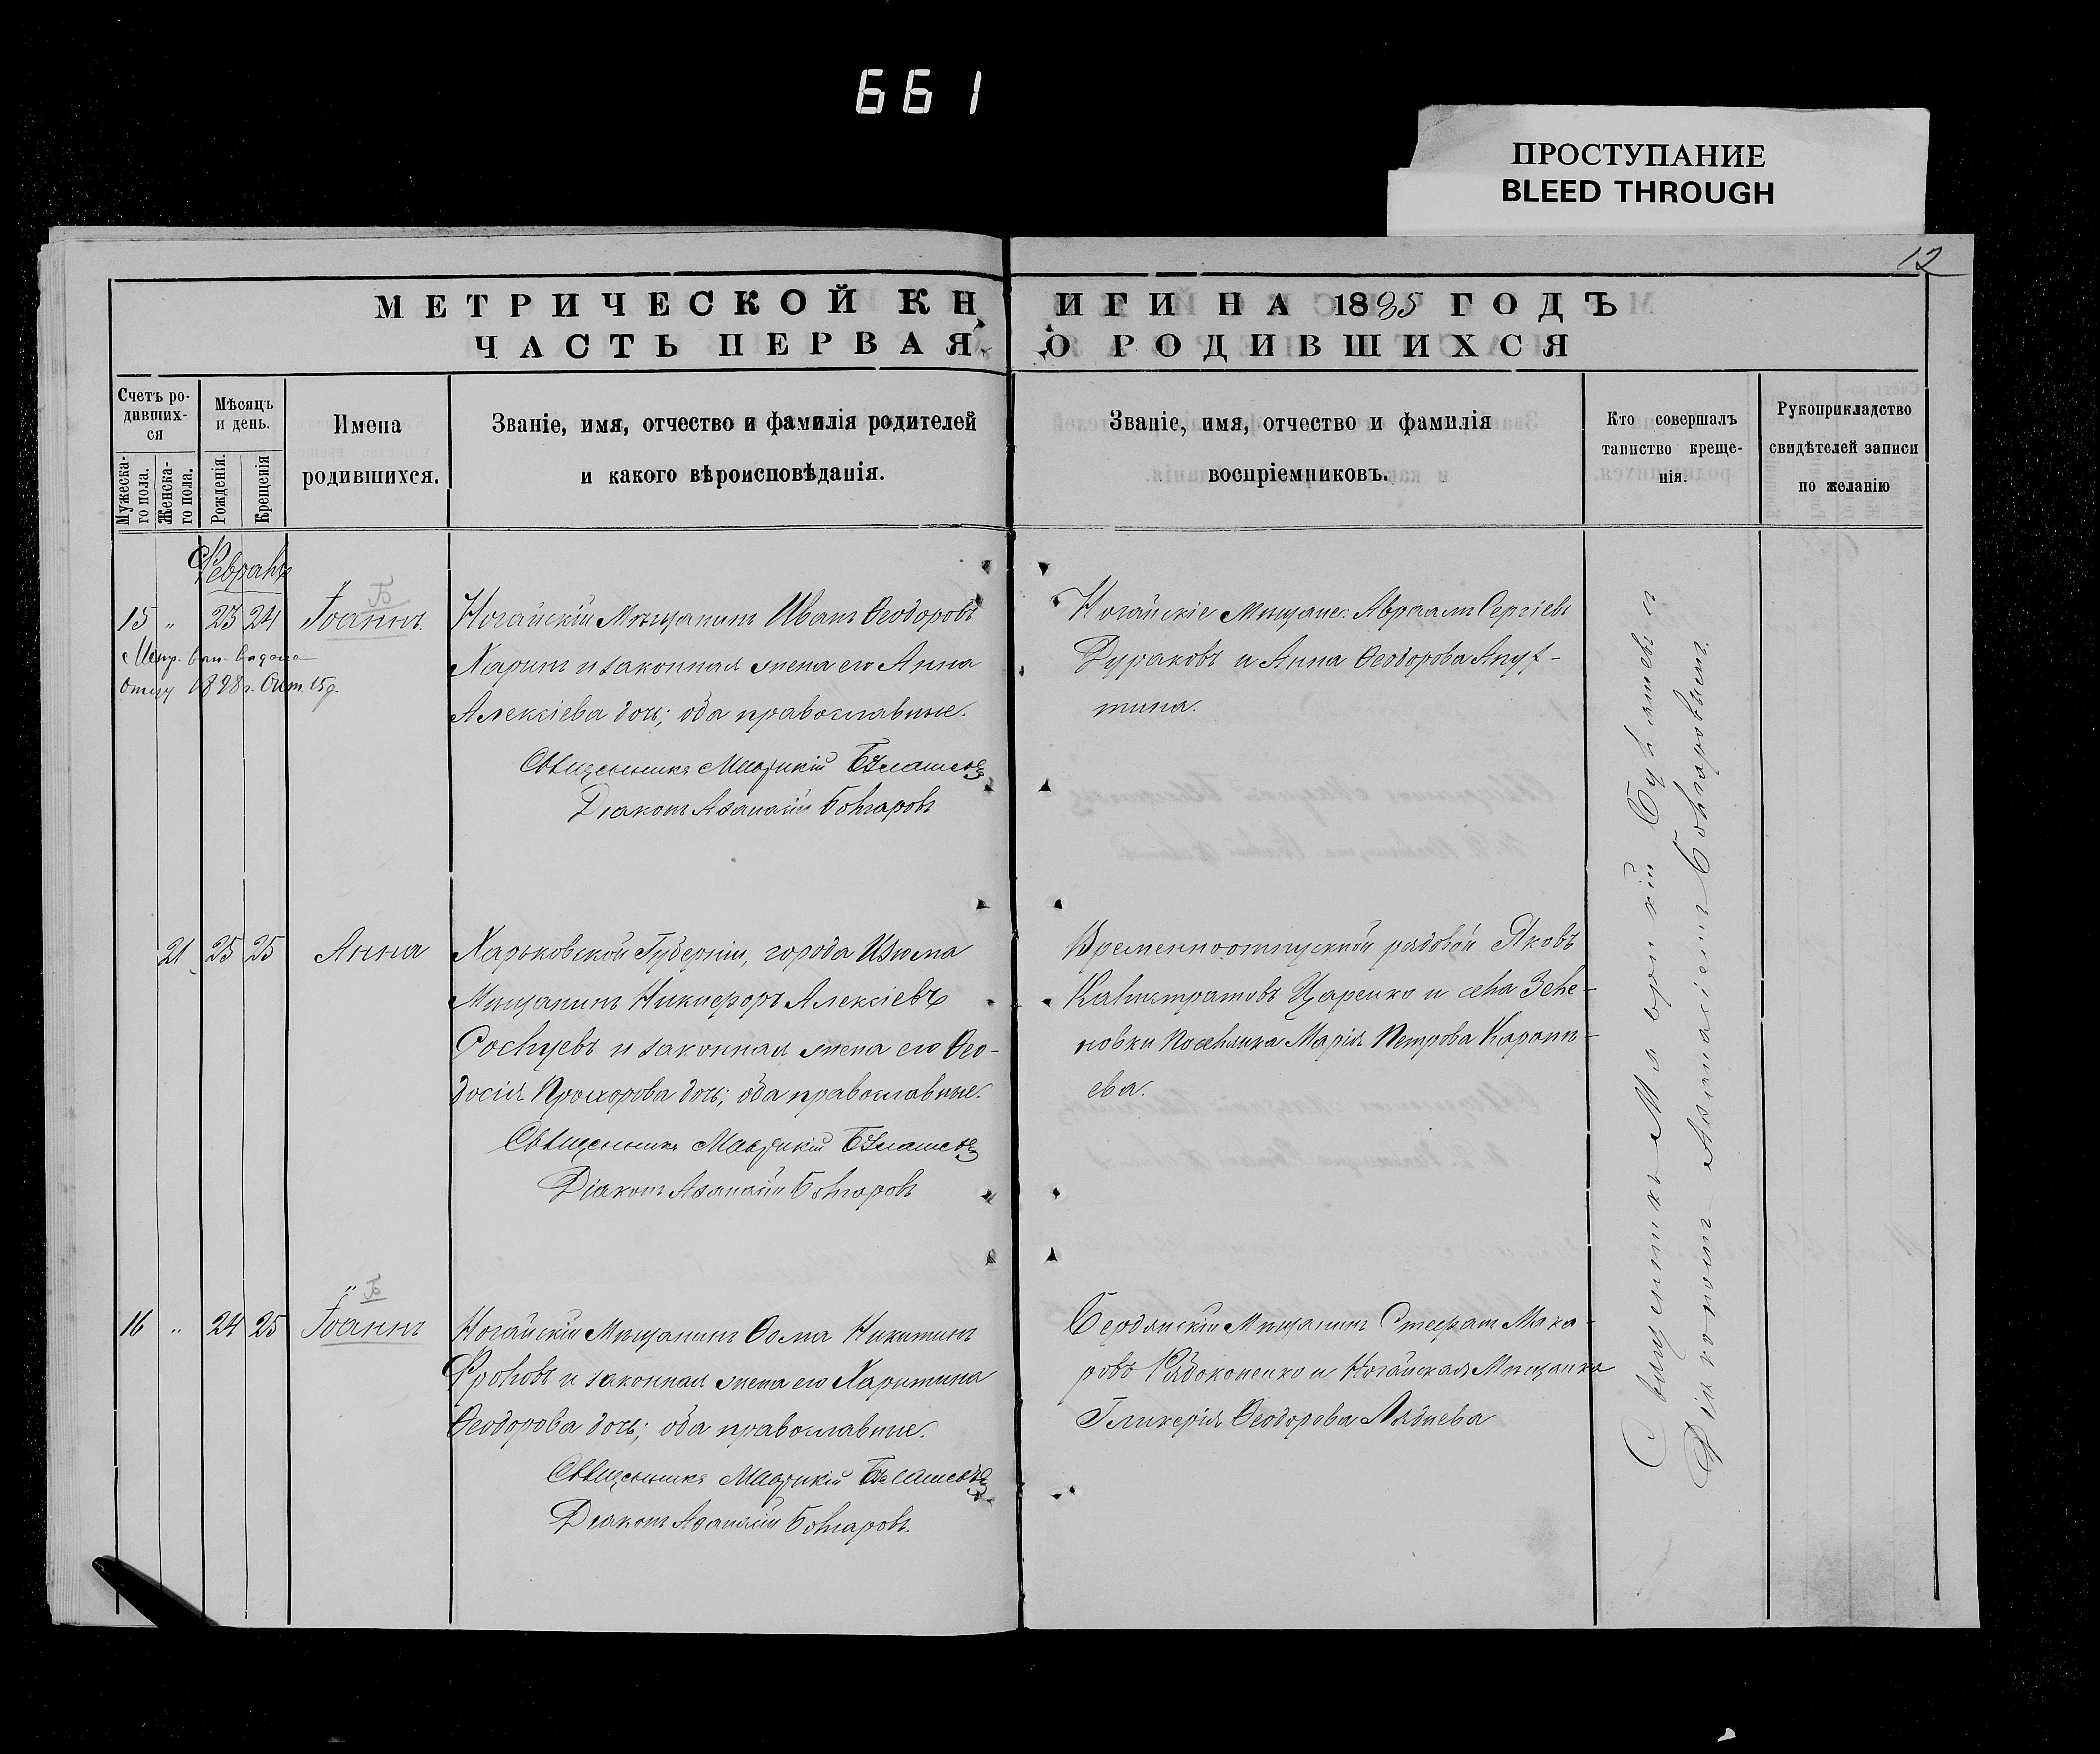 661
ПРОСТУПАНИЕ
BLEED THROUGH
12
МЕТРИЧЕСКОЙ КНИГИ НА 1885 ГОДЪ
ЧАСТЬ ПЕРВАЯ, О РОДИВШИХСЯ
Счетъ ро-
дивших-
ся
Мужеска-
го пола.
Женска-
го пола.
Мѣсяцъ
и день.
Рожденія.
Крещенія
Имена
родившихся.
Званіе, имя, отчество и фамилія родителей
и какого вѣроисповѣданія.
Званіе, имя, отчество и фамилія
воспріемниковъ.
Кто совершалъ
таинство креще-
нія.
Рукоприкладство
свидѣтелей записи
по желанію
Февраль
15 " 23 24 Іоаннъ
Б
Метр. вып. выдана
отцу 1898 г. Окт. 15 д.
Ногайскій Мѣщанинъ Иванъ Ѳеодоровъ
Харинъ и законная жена его Анна
Алексіева дочь; оба православные.
Священникъ Маврикій
Діаконъ Аѳанасій Болгаровъ
Ногайскіе Мѣщане: Авраамъ Сергіевъ
Дураковъ и Анна Ѳеодорова
тина.
21 25 25 Анна
Харьковской Губерніи, города Изюма
Мѣщанинъ Никифоръ Алексіевъ
и законная жена его Ѳео-
досія Прохорова дочь; оба православные.
Священникъ Маврикій
Діаконъ Аѳанасій Болгаровъ
Временноотпускной рядовой Яковъ
Калистратовъ Царенко и села Зеле-
новки Поселянка Марія Петрова Каропъ-
ева.
16 " 24 25 Іоаннъ
Б
Ногайскій Мѣщанинъ Ѳома Никитинъ
Фроловъ и законная жена его Харитина
Ѳеодорова дочь; оба православные.
Священникъ Маврикій
Діаконъ Аѳанасій Болгаровъ.
Бердянскій Мѣщанинъ Стефанъ Мака-
ровъ и Ногайская Мѣщанка
Гликерія Ѳеодорова Ляднева
Священникъ Маврикій и
Діакономъ Аѳанасіемъ Болгаровымъ.